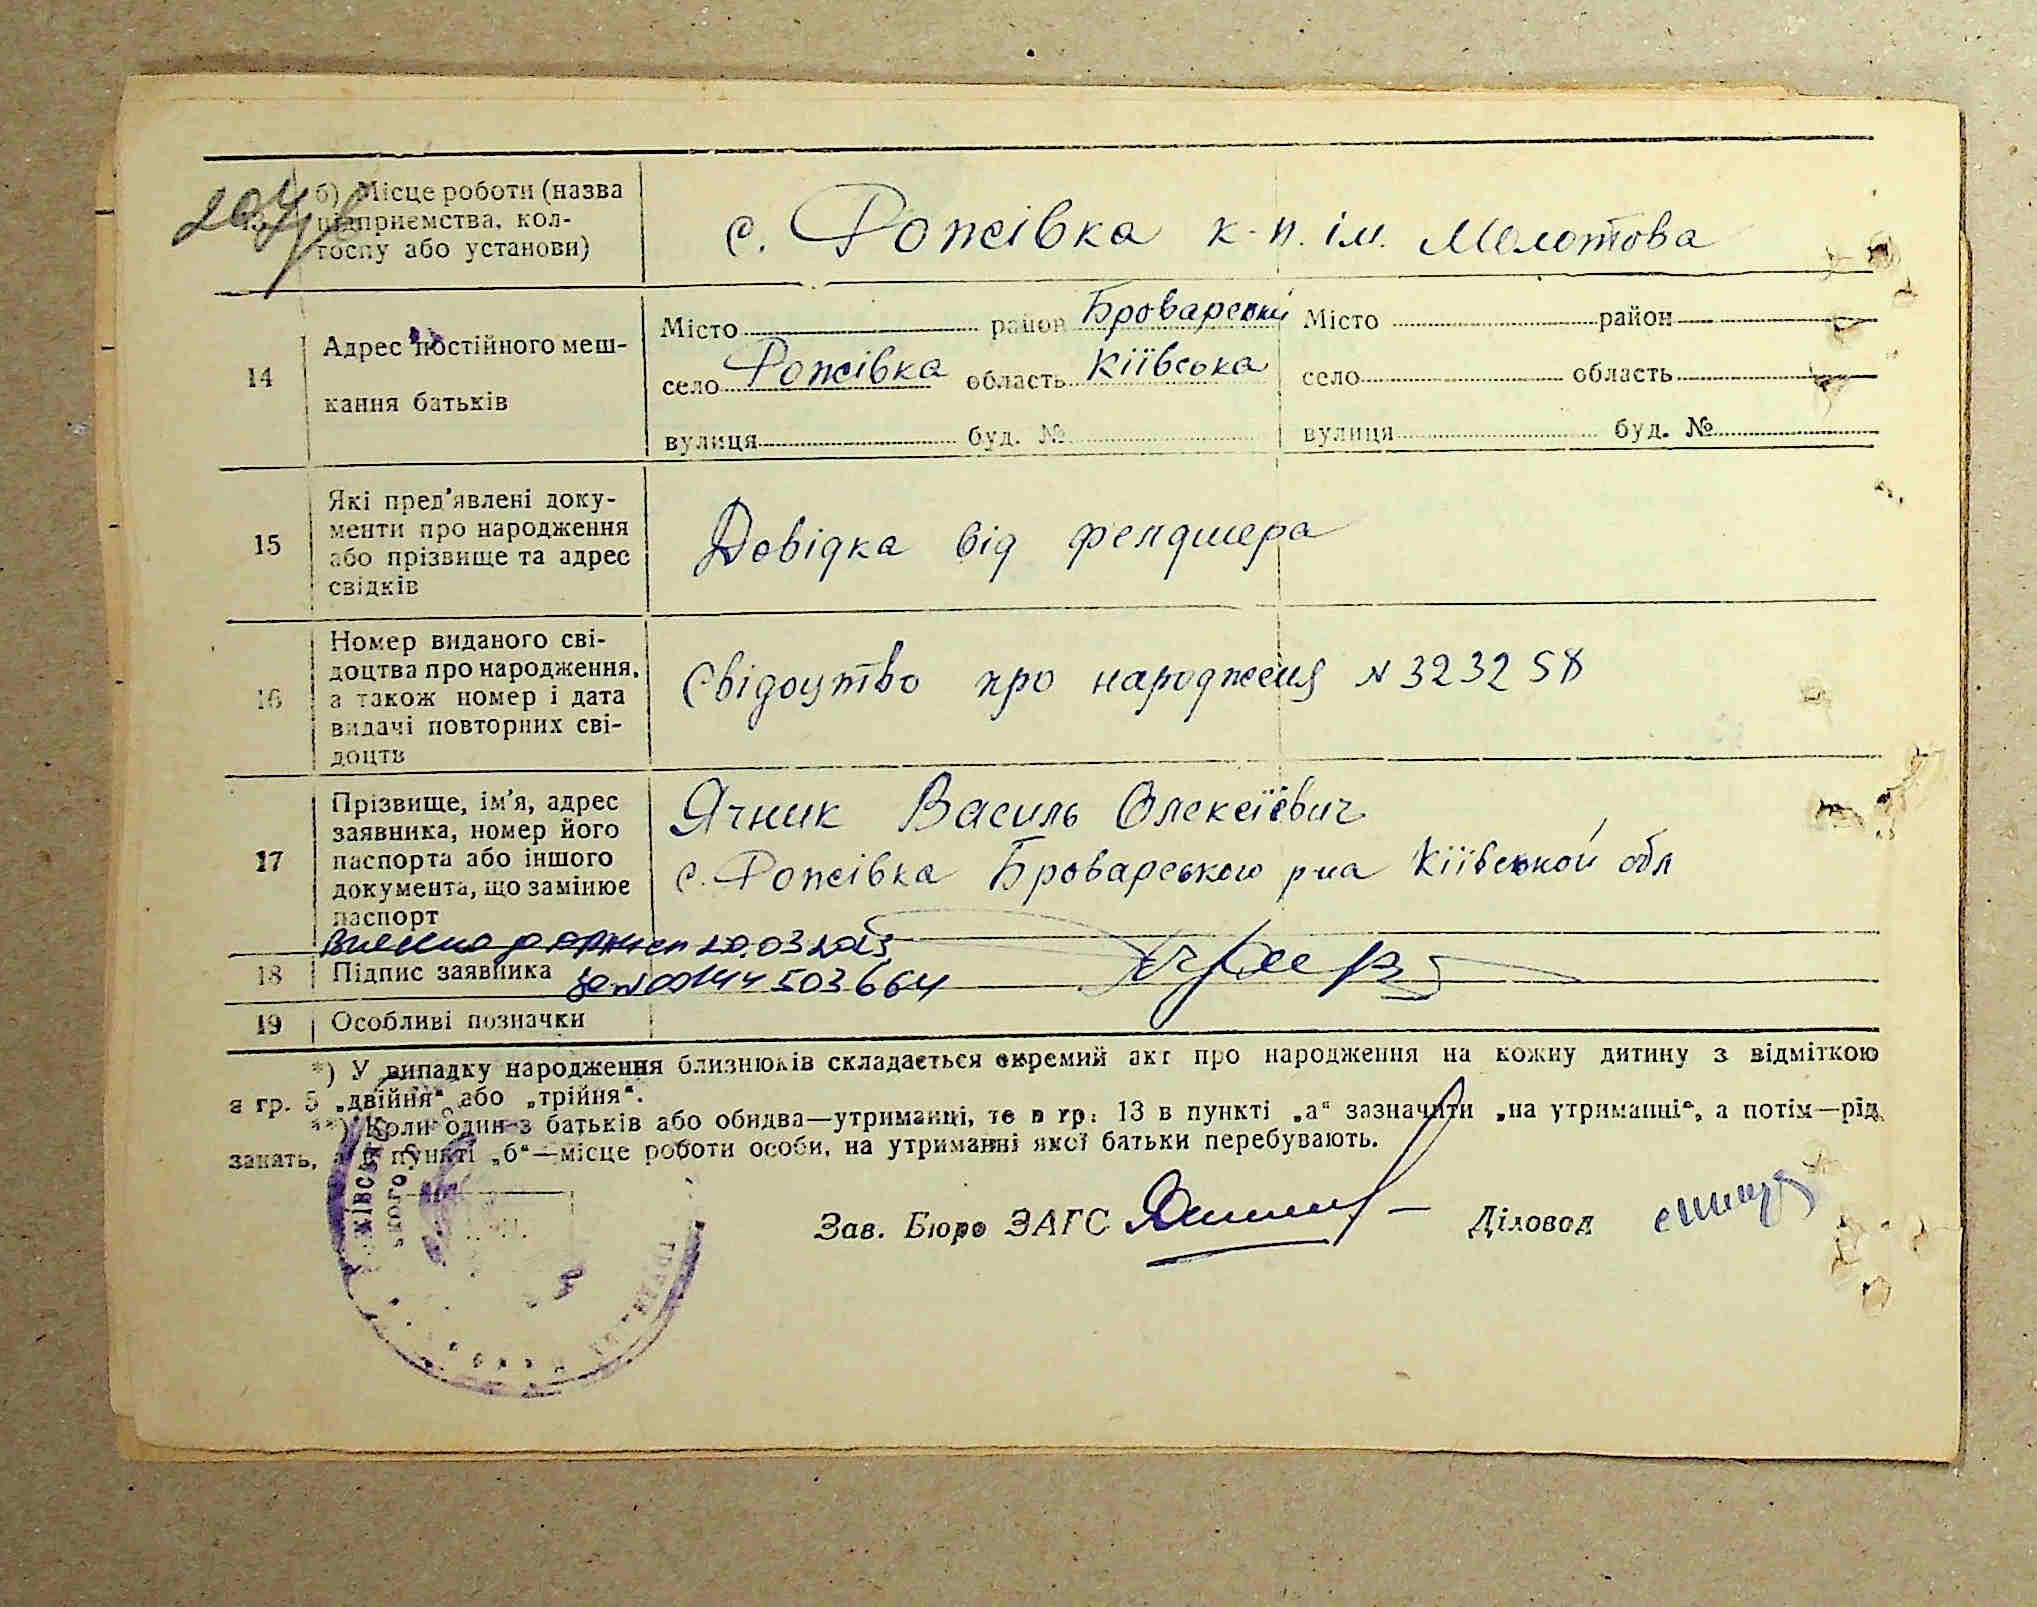 б) Місце роботи (назва
підприємства, кол-
госпу або установи)
с. Рожівка к-п. ім. Молотова
14
Адрес постійного меш-
кання батьків
Місто район Броварський Місто район
село Рожівка область Кіївська село область
вулиця буд. № вулиця буд. №
15
Які пред'явлені доку-
менти про народження
або прізвище та адрес
свідків
Довідка від фелдшера
16
Номер виданого сві-
доцтва про народження,
а також номер і дата
видачі повторних сві-
доцтв
Свідоцтво про народженя N 323258
17
Прізвище, ім'я, адрес
заявника, номер його
паспорта або іншого
документа, що замінює
паспорт
Ячник Василь Олексіївич
с. Рожівка Броварського р-на Кіівской обл
20.03.2023
18 Підпис заявника
00144503664
19 Особливі позначки
*) У випадку народження близнюків складається окремий акт про народження на кожну дитину з відміткою
в гр. 5 „двійня“ або „трійня“.
**) Коли один з батьків або обидва—утриманці, те в гр. 13 в пункті „а“ зазначити „на утриманні“, а потім—рід
занять, а в пункті „б“—місце роботи особи, на утриманні якої батьки перебувають.
Зав. Бюро ЗАГС Діловод